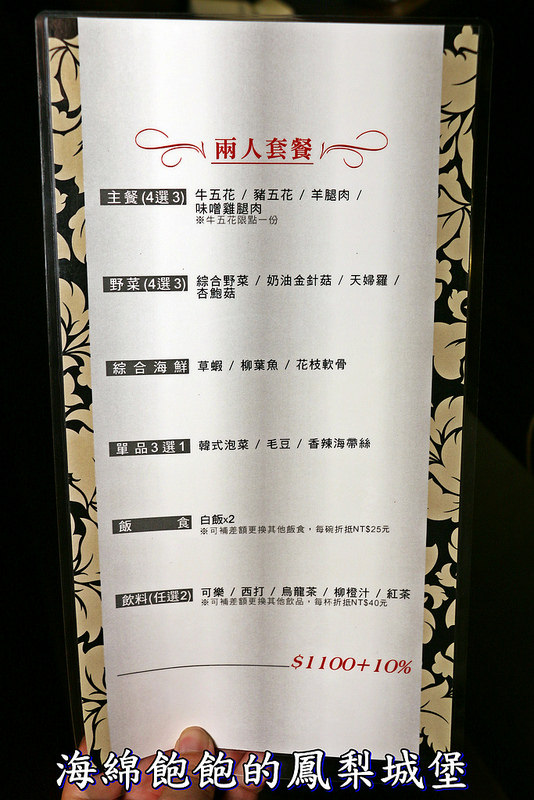 兩人套餐
主餐(4選3) 牛五花 / 豬五花 / 羊腿肉 /
味噌雞腿肉
※牛五花限點一份
野菜(4選3) 綜合野菜 / 奶油金針菇 / 天婦羅 /
杏鮑菇
綜合海鮮 草蝦 / 柳葉魚 / 花枝軟骨
單品3選1 韓式泡菜 / 毛豆 / 香辣海帶絲
飯食 白飯x2
※可補差額更換其他飯食，每碗折抵NT$25元
飲料(任選2) 可樂 / 西打 / 烏龍茶 / 柳橙汁 / 紅茶
※可補差額更換其他飲品，每杯折抵NT$40元
$1100+10%
海綿飽飽的鳳梨城堡